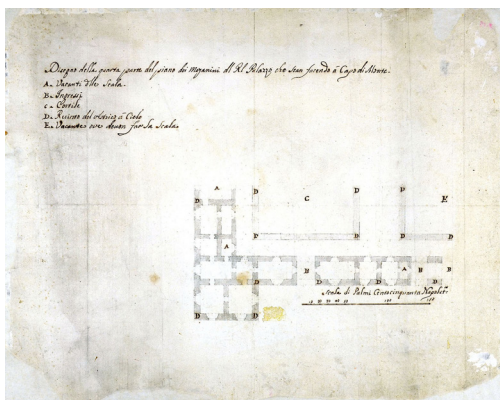 Disegno della quarta parte del piano dei Mezanini del Rl Palazzo che stan facendo à Capo di Monte.
A. Vacanti delle Scala.
B. Ingressi
C. Cortile
D. à Cielo
E. Vacante ove devon far la Scala.
A D D D
D C E
A
D D D D D
D B A B B
D D D
Scala di Palmi Centocinquanta Napolet.
D D